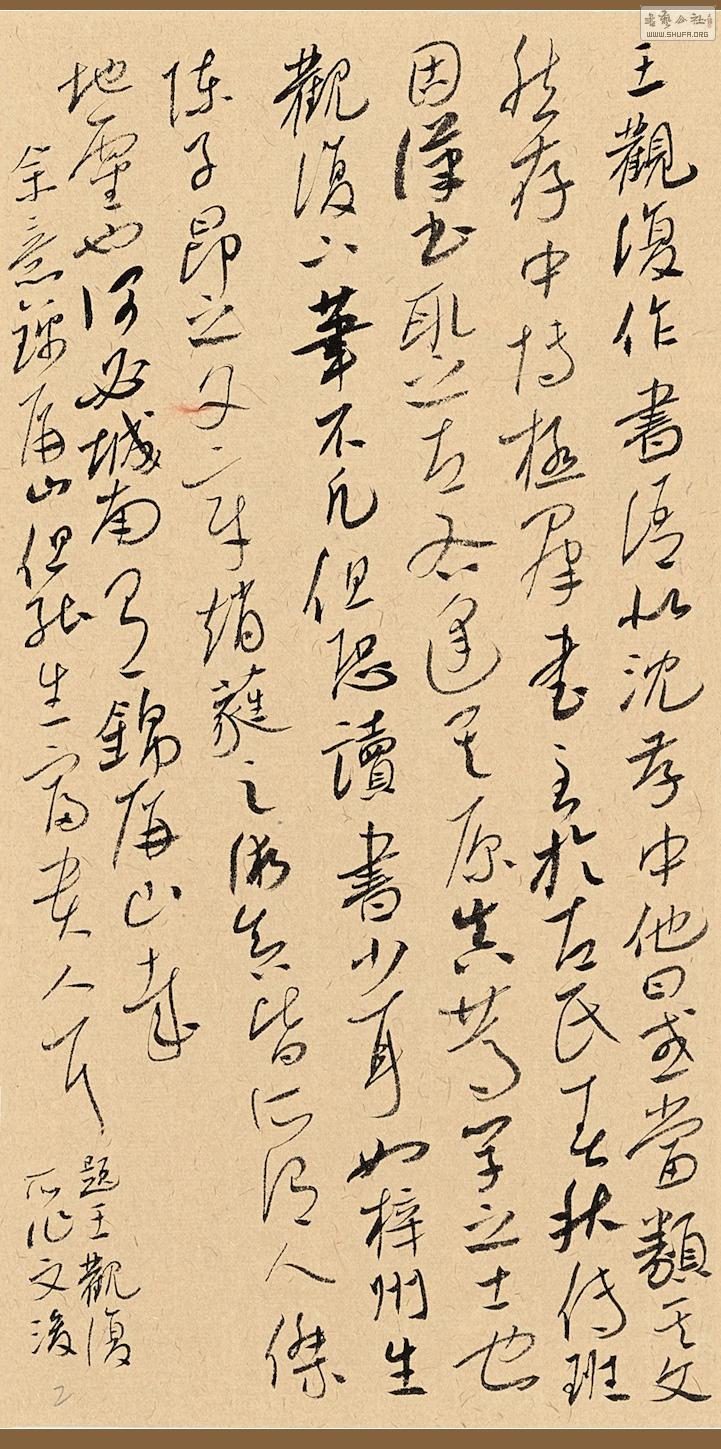 王觀復作書語似沈存中他日或當類其文
然存中博極群書至於左氏春秋傳班
固漢書取之左右逢其原真篤學之士也
觀復下筆不凡但恐讀書少耳如梓州生
陳子昂之文章趙蕤之術數皆所謂人傑
地靈也何必城南有錦屏山哉
余意錦屏山但能生富貴人耳
題王觀復
所作文後
書藝公社
WWW.SHUFA.ORG